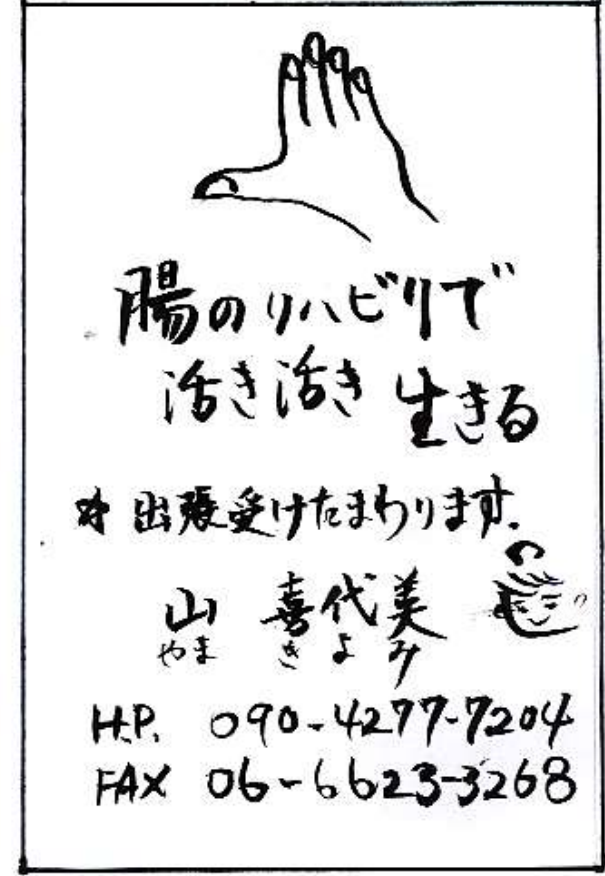 腸のリハビリで
活き活き生きる
* 出張受けたまわります.
山 喜代美
やま きよみ
H.P. 090-4277-7204
FAX 06-6623-3268